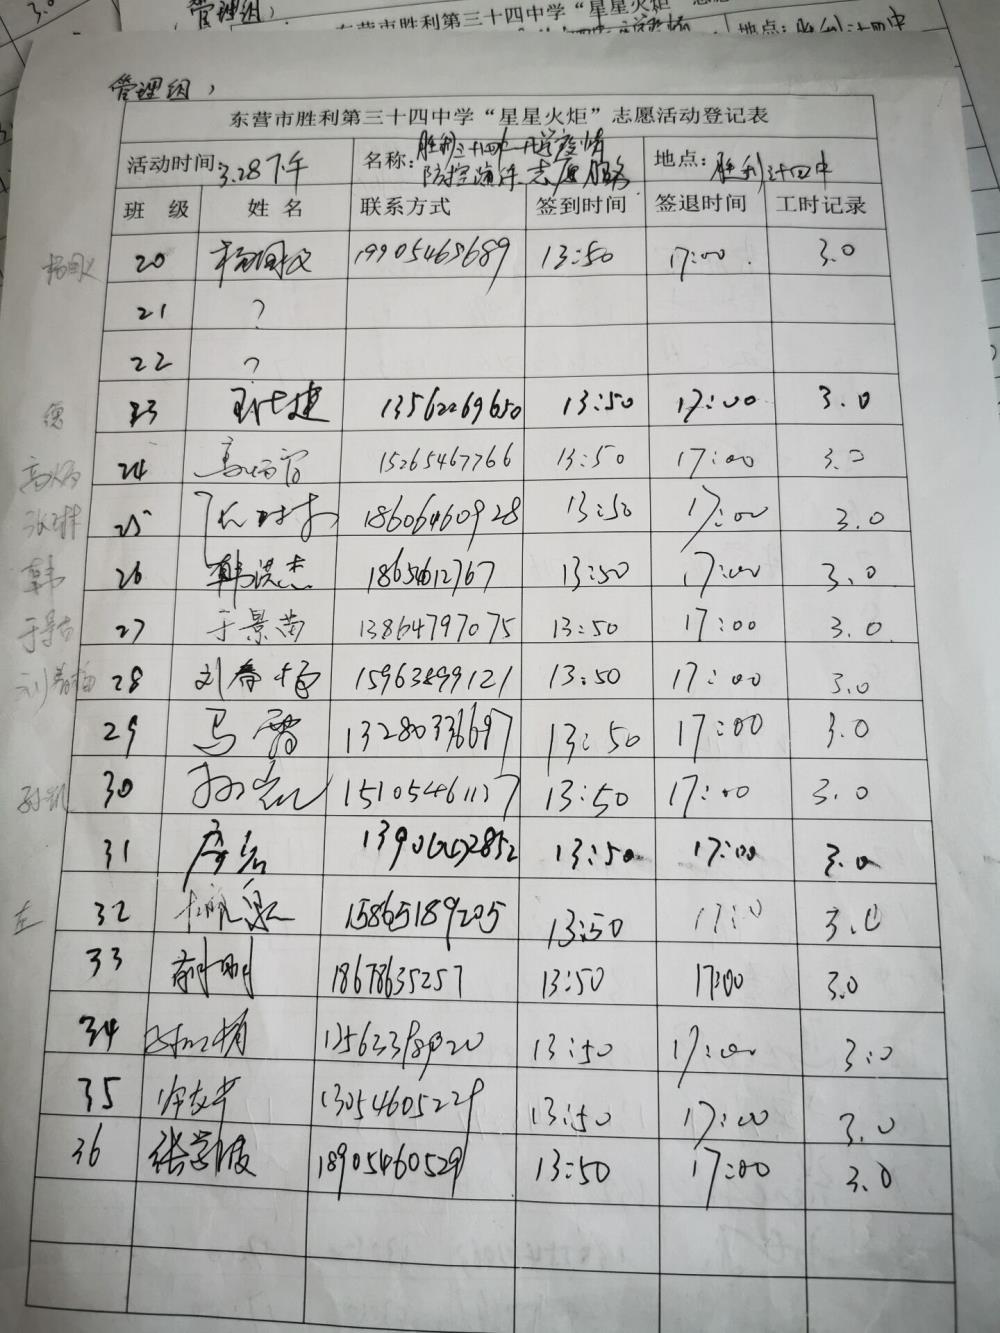 管理组：
东营市胜利第三十四中学“星星火炬”志愿活动登记表
活动时间：3.28下午 名称：胜利三十四中开学疫情防控演练志愿服务 地点：胜利三十四中
班 级 姓 名 联系方式 签到时间 签退时间 工时记录
杨国义 20 杨国义 19905465689 13:50 17:00 3.0
21 ?
22 ?
23 13562269650 13:50 17:00 3.0
24 15265467766 13:50 17:00 3.0
25 18606460928 13:50 17:00 3.0
韩 26 韩洪杰 13:50 17:00 3.0
27 于景 13864797075 13:50 17:00 3.0
刘春梅 28 刘春梅 15963899121 13:50 17:00 3.0
29 马雷 13280336697 13:50 17:00 3.0
孙凯 30 孙凯 15105461127 13:50 17:00 3.0
31 13:50 17:00 3.0
左 32 15865189205 13:50 3.0
33 18678635257 13:50 17:00 3.0
34 13:50 17:00 3.0
35 13054605229 13:50 17:00 3.0
36 张学波 18905460529 13:50 17:00 3.0